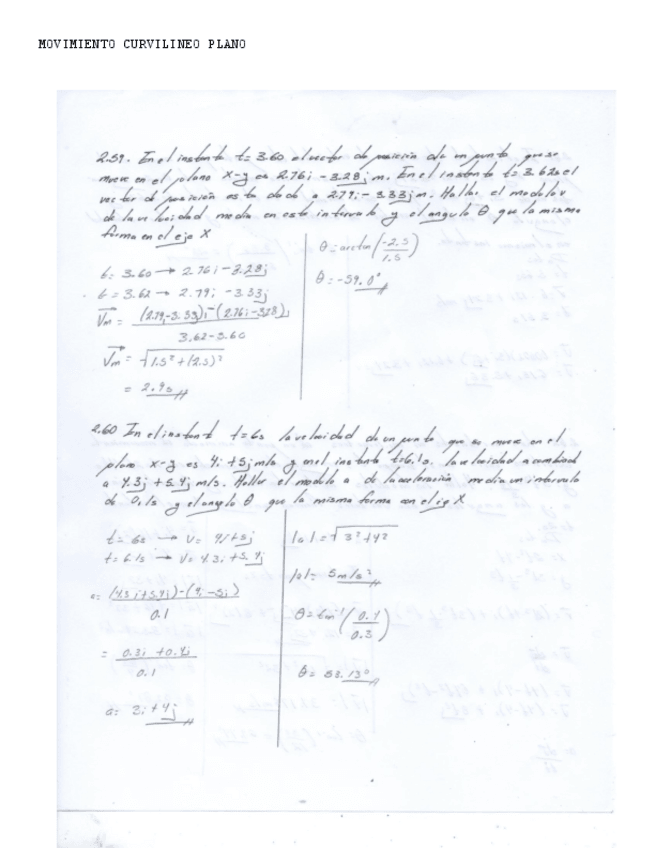 MOVIMIENTO CURVILINEO PLANO
2.59. En el instante t= 3.60 el vector de posición de un punto que se
mueve en el plano x-y es 2.76i -3.28j m. En el instante t= 3.62s el
vector de posición esta dado a 2.79i - 3.33j m. Hallar el modulo v
de la velocidad media en este intervalo y el angulo θ que la misma
forma en el eje X
t= 3.60 → 2.76i -3.28j
t= 3.62 → 2.79i -3.33j
Vm = (2.79-3.33)j -(2.76i -3.28)j
3.62-3.60
Vm = √1.5² +(2.5)²
= 2.9s
θ = arcton(-2.5
1.5)
θ = -59.0°
2.60 En el instant t=6s la velocidad de un punto que se mueve en el
plano x-y es 4i +5j m/s y en el instante t=6.1s. la velocidad a cambiad
a 4.3j +5.4j m/s. Hallar el modulo a de la aceleración media un intervalo
de 0.1s y el angulo θ que la misma forma con el eje X
t= 6s → v= 4i+5j
t= 6.1s → v= 4.3i +5.4j
a= (4.3i+5.4j)-(4i -5j)
0.1
= 0.3i +0.4j
0.1
a= 3i +4j
|a|= √3²+4²
|a|= 5m/s²
θ= tan⁻¹(0.4
0.3)
θ= 53.13°